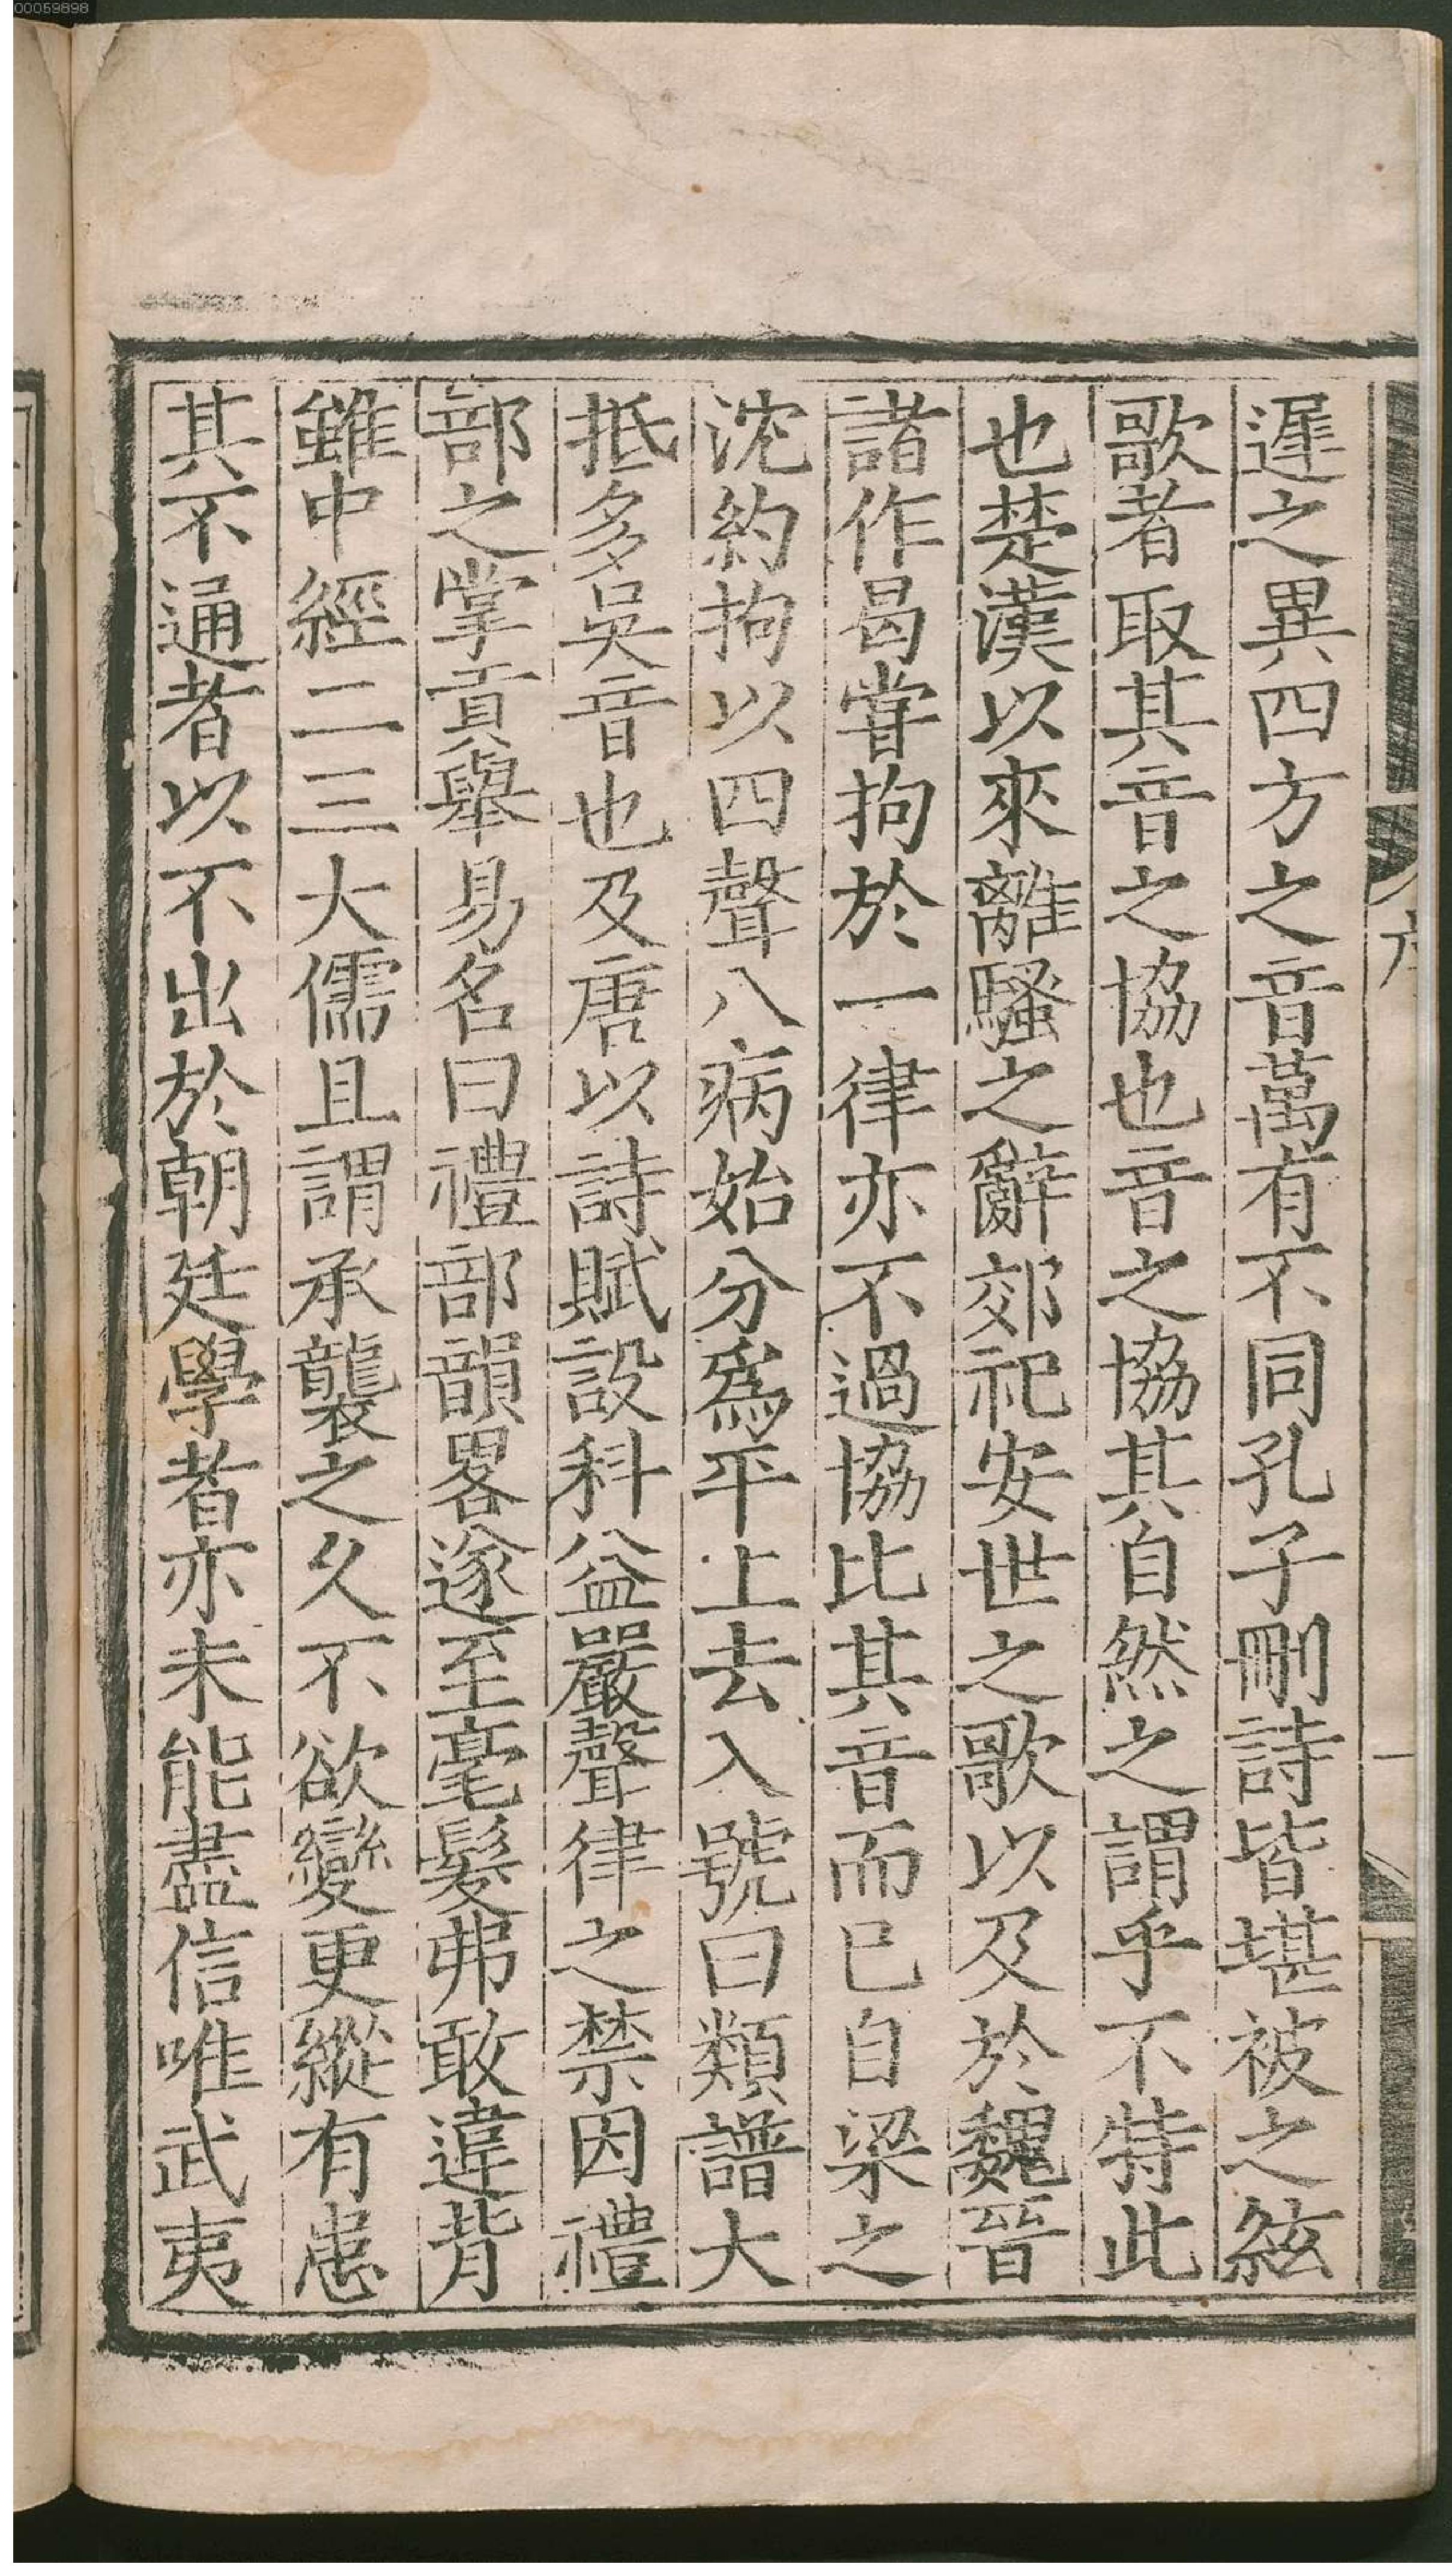 00059898
遲之異四方之音萬有不同孔子刪詩皆堪被之絃
歌者取其音之協也音之協其自然之謂乎不特此
也楚漢以來離騷之辭郊祀安世之歌以及於魏晉
諸作曷甞拘於一律亦不過協比其音而已自梁之
沈約拘以四聲八病始分爲平上去入號曰類譜大
抵多吳音也及唐以詩賦設科益嚴聲律之禁因禮
部之掌貢舉易名曰禮部韻畧遂至毫髮弗敢違背
雖中經二三大儒且謂承襲之久不欲變更縱有患
其不通者以不出於朝廷學者亦未能盡信唯武夷